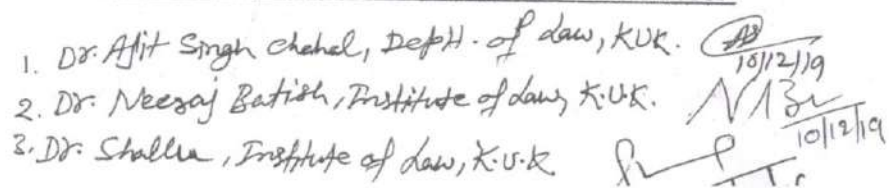 1. Dr. Ajit Singh Chahal, Deptt. of Law, KUK. 10/12/19
2. Dr. Neeraj Batish, Institute of Law, K.U.K. 10/12/19
3. Dr. Shallu, Institute of Law, K.U.K